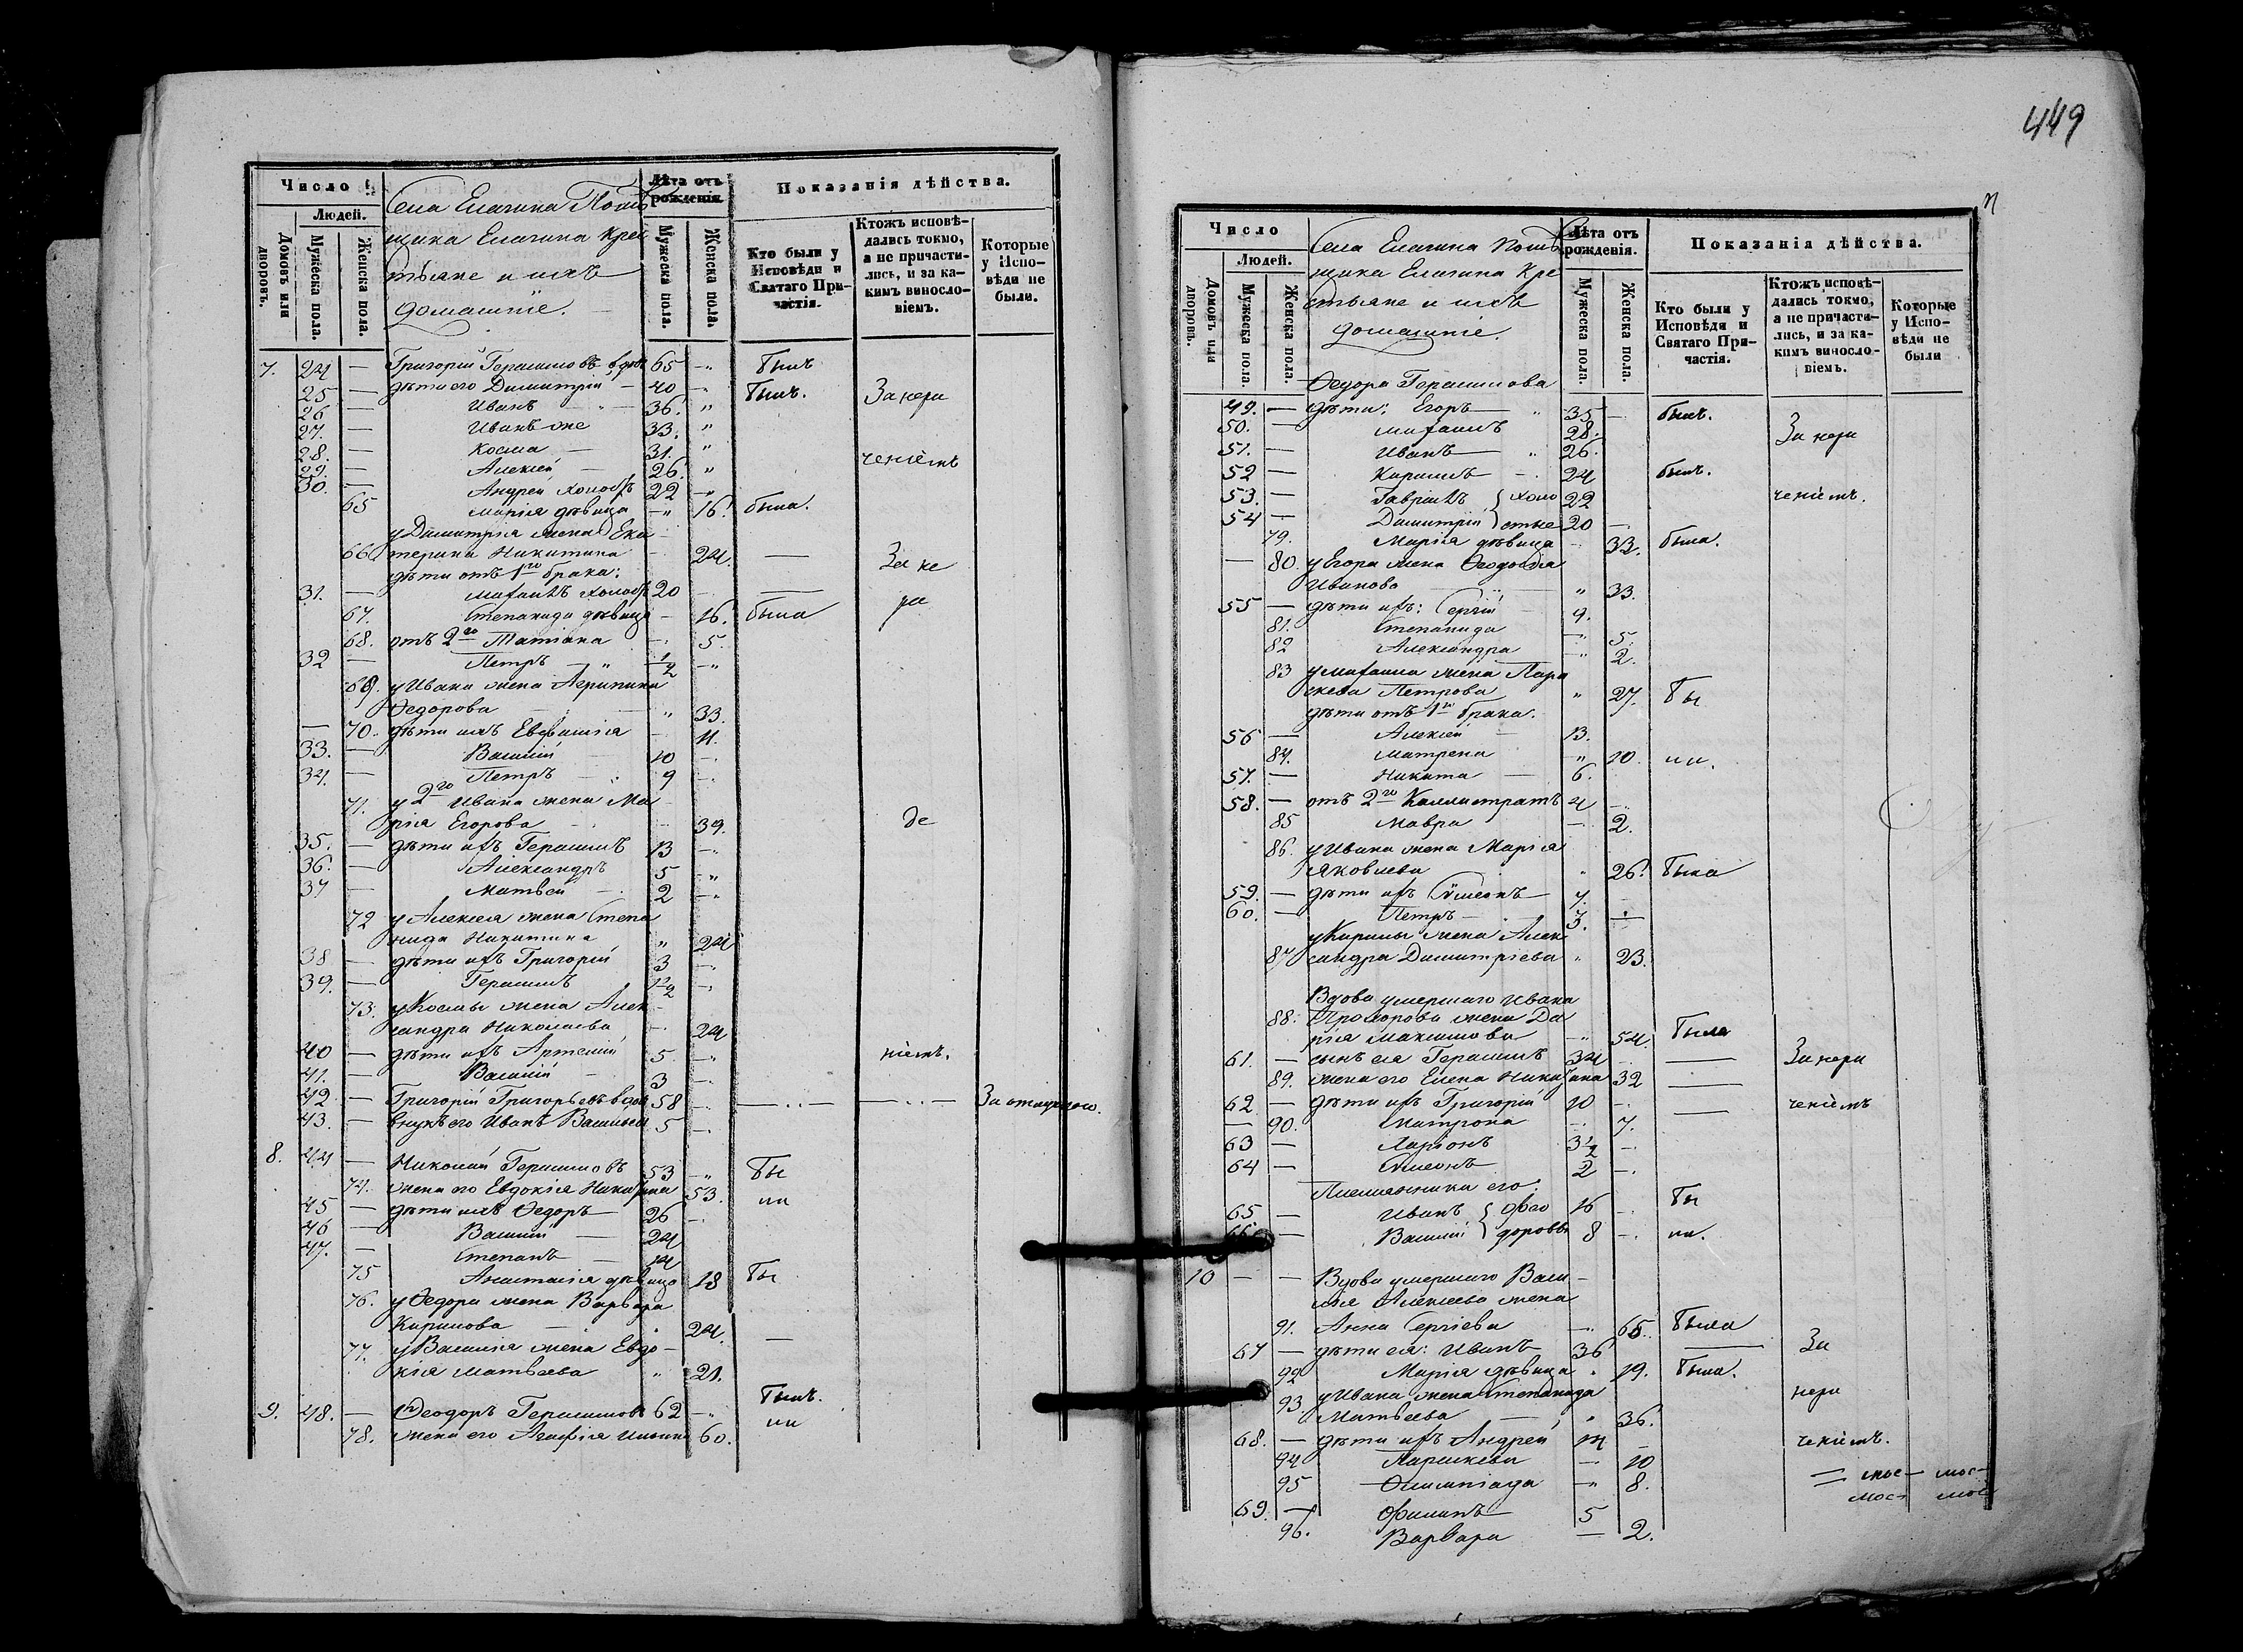 449
Число
Людей.
Домовъ или дворовъ.
Мужеска пола.
Женска пола.
Села Елагина Помѣ
щика Елагина кре
стьяне и ихъ
домашніе.
Лѣта отъ рожденія.
Мужеска пола.
Женска пола.
Показанія дѣйства.
Кто были у Исповѣди и Святаго Причастія.
Ктожъ исповѣдались токмо, а не причастились, и за какимъ винословіемъ.
Которые у Исповѣди не были.
7. 24 — Григорій Герасимовъ вдовъ 65 былъ
25 — дѣти его Димитрій 40 былъ. За нера
26 — Иванъ 36.
27. — Иванъ же 33.
28. — Косма 31.
29. — Алексій 26. ченіемъ
30. — Андрей холостъ 22
65 Марія дѣвица 16. была.
у Димитрія жена Ека
66 терина Никитина 24. — За не
дѣти отъ 1го брака:
31. — Михаилъ холостъ 20 —
67. Степанида дѣвица 16. была ра
68. отъ 2го Татіана 5.
32 — Петръ 1/2
69. у Ивана жена Агрипина
Федорова 33.
— 70. дѣти ихъ Евфимія 11.
33. — Василій 10
34. — Петръ 9
71. у 2го Ивана жена Ма
рія Егорова 39. де
35. — дѣти ихъ Герасимъ 13
36. — Александръ 5
37 — Матвей 2
72 у Алексія жена Степа
нида Никитина 24
38 — дѣти ихъ Григорій 3
39. — Герасимъ 1/2
73. у Космы жена Алек
сандра Николаева 24
40 — дѣти ихъ Артемій 5. ніемъ.
41. — Василій 3
42 — Григорій Григорьевъ вдовъ 58 За отлучкою.
43. — внукъ его Иванъ Васильевъ 5
8. 44 — Николай Герасимовъ 53 Бы
74. жена его Евдокія Никитина 53. ли
45 — дѣти ихъ Федоръ 26
46 — Василій 24
47. — Степанъ 14
75 Анастасія дѣвица 18 Бы
76. у Федора жена Варвара
Кирилова 24. —
77. у Василія жена Евдо
кія Матвеева 21.
9. 48. — Феодоръ Герасимовъ 62 былъ.
78. жена его Агафія Ильина 60. ли
Число
Людей.
Домовъ или дворовъ.
Мужеска пола.
Женска пола.
Села Елагина помѣ
щика Елагина кре
стьяне и ихъ
домашніе.
Лѣта отъ рожденія.
Мужеска пола.
Женска пола.
Показанія дѣйства.
Кто были у Исповѣди и Святаго Причастія.
Ктожъ исповѣдались токмо, а не причастились, и за какимъ винословіемъ.
Которые у Исповѣди не были
Федора Герасимова
49. — дѣти: Егоръ 35 былъ.
50. — Михаилъ 28. За нера
51. — Иванъ 26.
52 — Кирилъ 24 былъ.
53. — Гавріилъ холо 22 ченіемъ.
54 — Димитрій стые 20
79. Марія дѣвица 32. была.
— 80. у Егора жена Феодосія
Иванова 33.
55 — дѣти ихъ: Сергій 9.
81. Степанида 5.
82 Александра 2.
83 у Михаила жена Пара
скева Петрова 27. Бы
дѣти отъ 1го брака.
56 — Алексій 13.
84. Матрена 10. ли.
57. — Никита 6.
58. — отъ 2го Каллистратъ 4
85 Мавра 2.
86. у Ивана жена Марія
Яковлева 26. Была
59. — дѣти ихъ Симеонъ 7.
60. — Петръ 3.
у Кирилы жена Алек
87 сандра Димитріева 23.
Вдова умершаго Ивана
88. Прохорова жена Да
рія Максимова 54. Была
61. — сынъ ея Герасимъ 34 — За нера
89. жена его Елена Никитина 32 —
62 — дѣти ихъ Григорій 10 — ченіемъ
— 90. Матрона 7.
63 — Ларіонъ 3 1/2
64 — Симеонъ 2
Племянники его:
65 — Иванъ Фео 16 Бы
66. — Василій доровы 8 ли.
10 — — Вдова умершаго Васи
лія Алексеева жена
91. Анна Сергіева 65. была
67 — дѣти ея: Иванъ 36 — За
92 Марія дѣвица 19. была.
93. у Ивана жена Степанида
Матвеева 36. нера
68. — дѣти ихъ Андрей 14 ченіемъ.
94 Параскева 10
95 Олимпіада 8.
69. — Филипъ 5
96. Варвара 2.